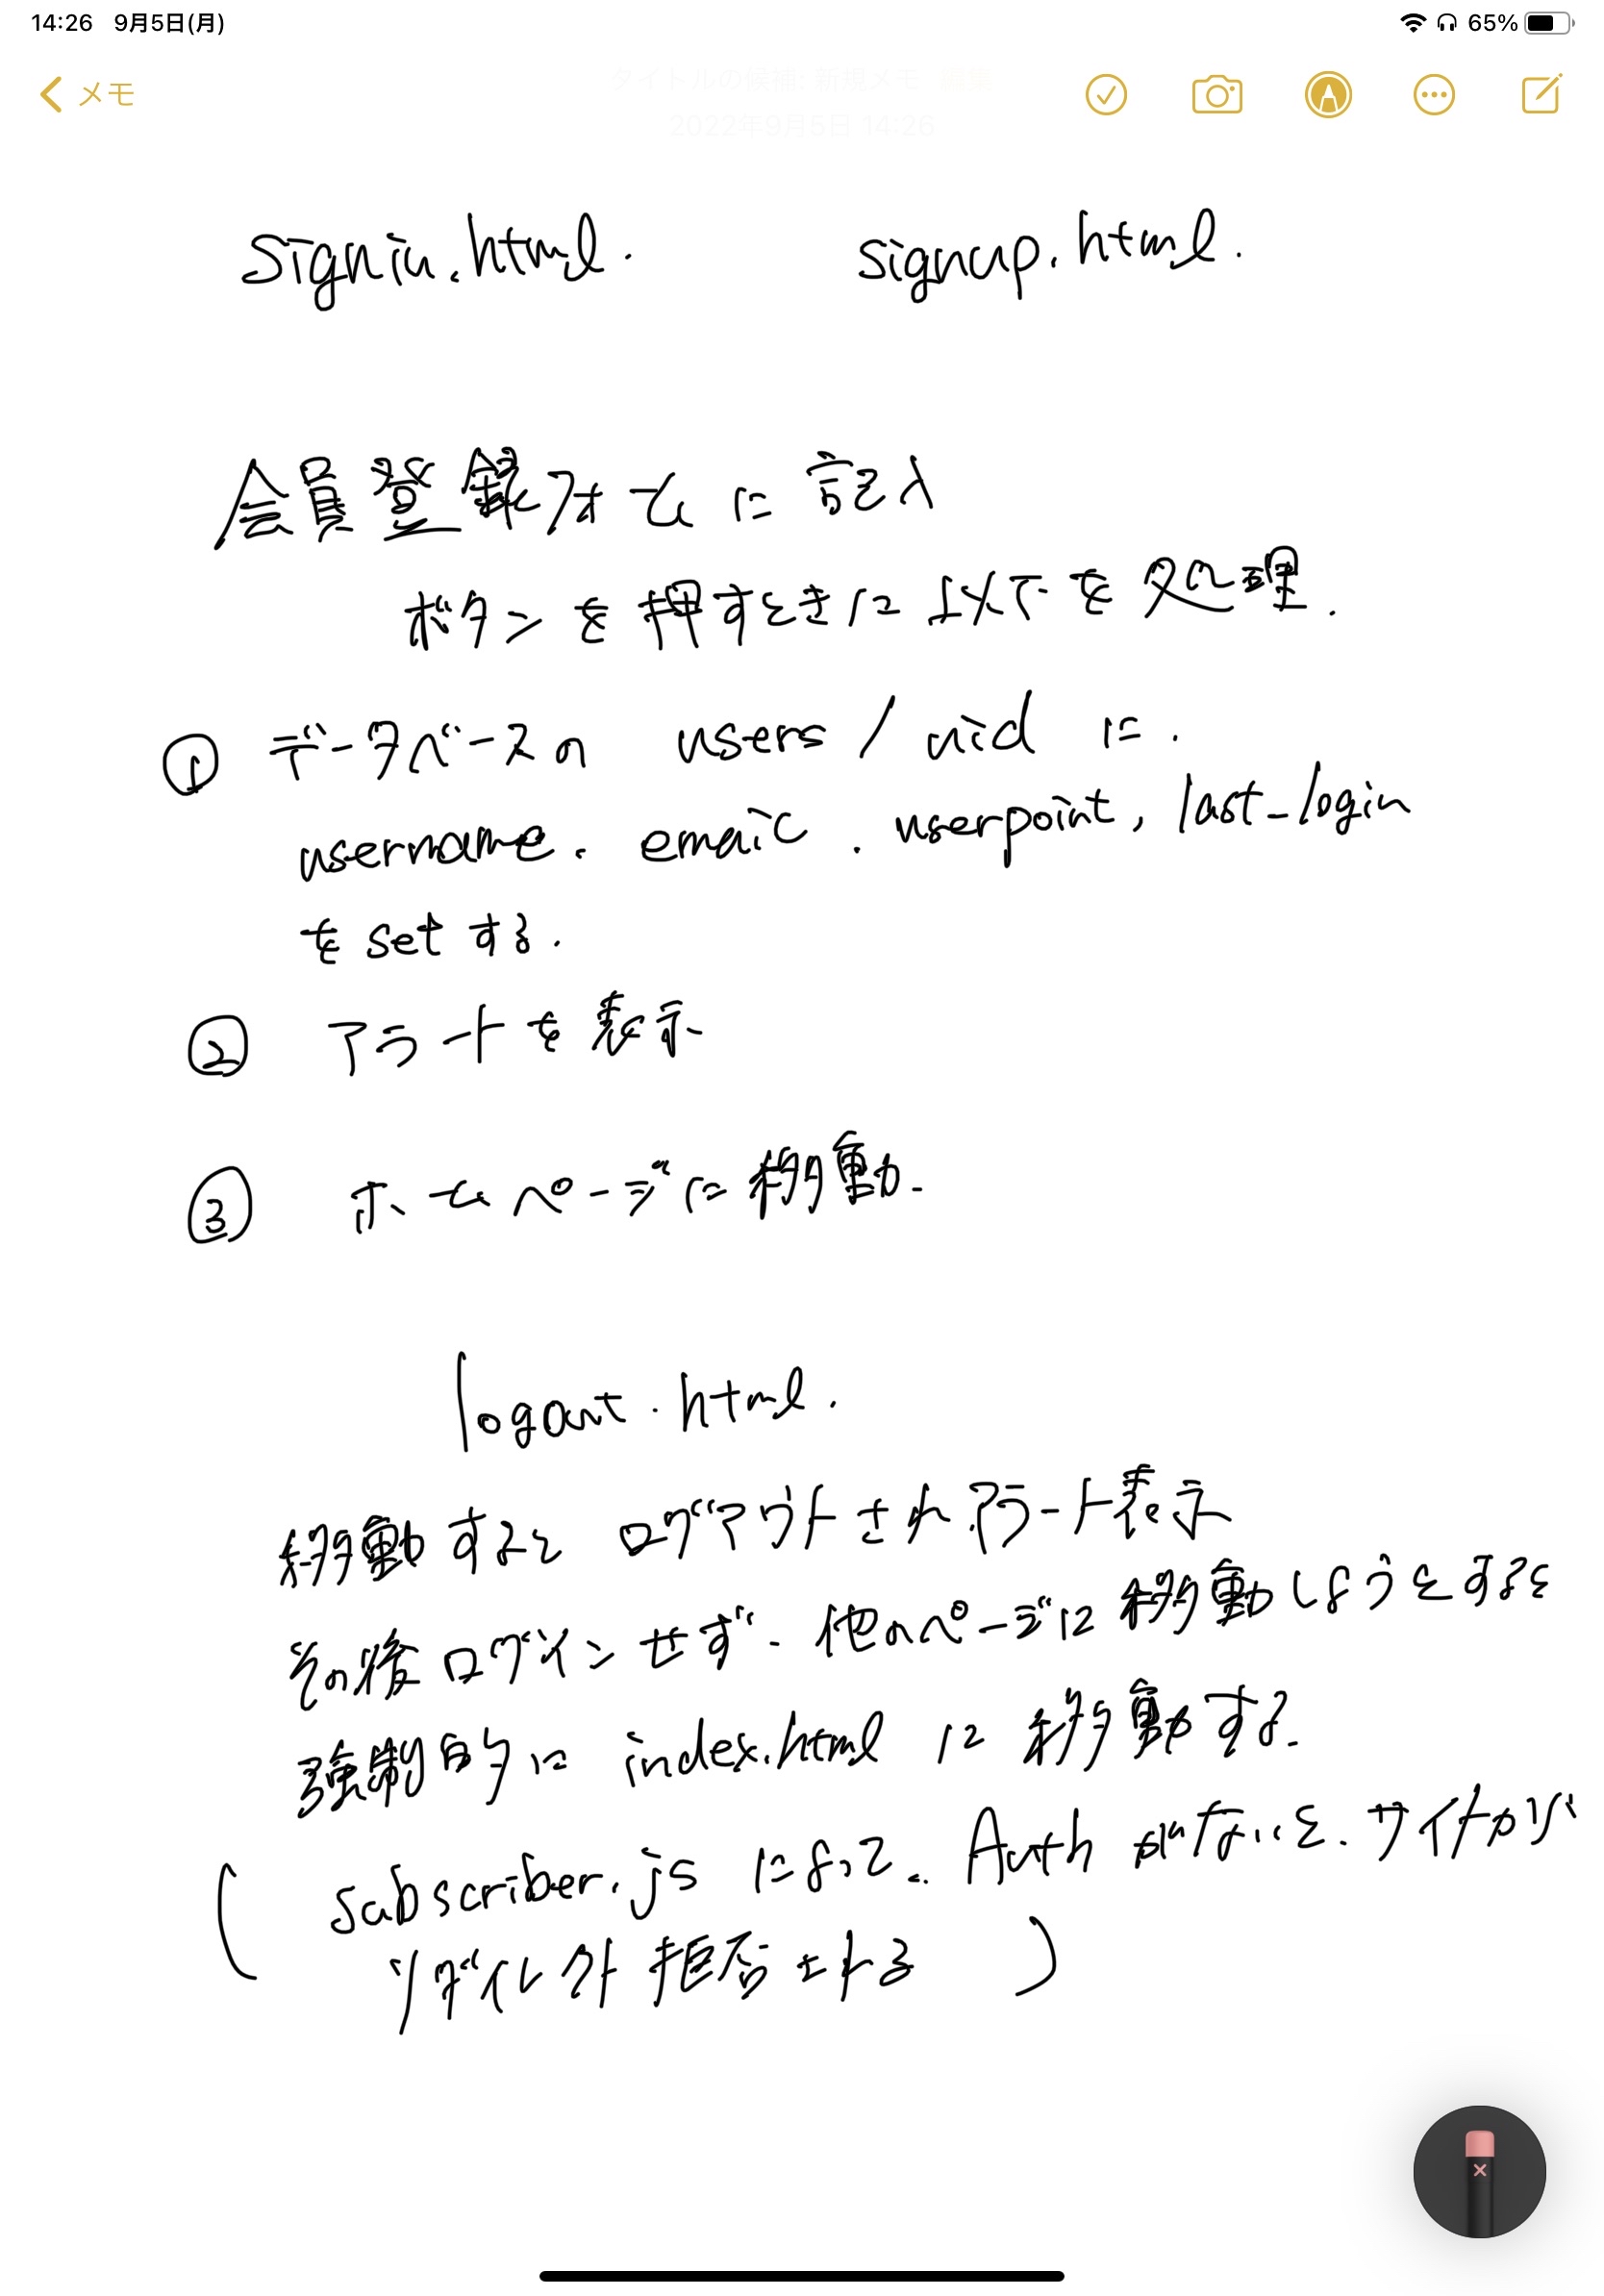 14:26 9月5日(月) 65%
メモ
タイトルの候補: 新規メモ 編集
2022年9月5日 14:26
signin.html. signup.html.
会員登録フォームに記入
ボタンを押すときに以下を処理.
① データベースの users/uid に.
username. email. userpoint, last_login
を set する.
② アラートを表示
③ ホームページに移動.
logout.html.
移動すると ログアウトされ.アラート表示
その後ログインせず. 他のページに移動しようとすると
強制的に index.html に移動する.
( subscriber.js によって. Auth がないと.サイトから
リダイレクト拒否される )